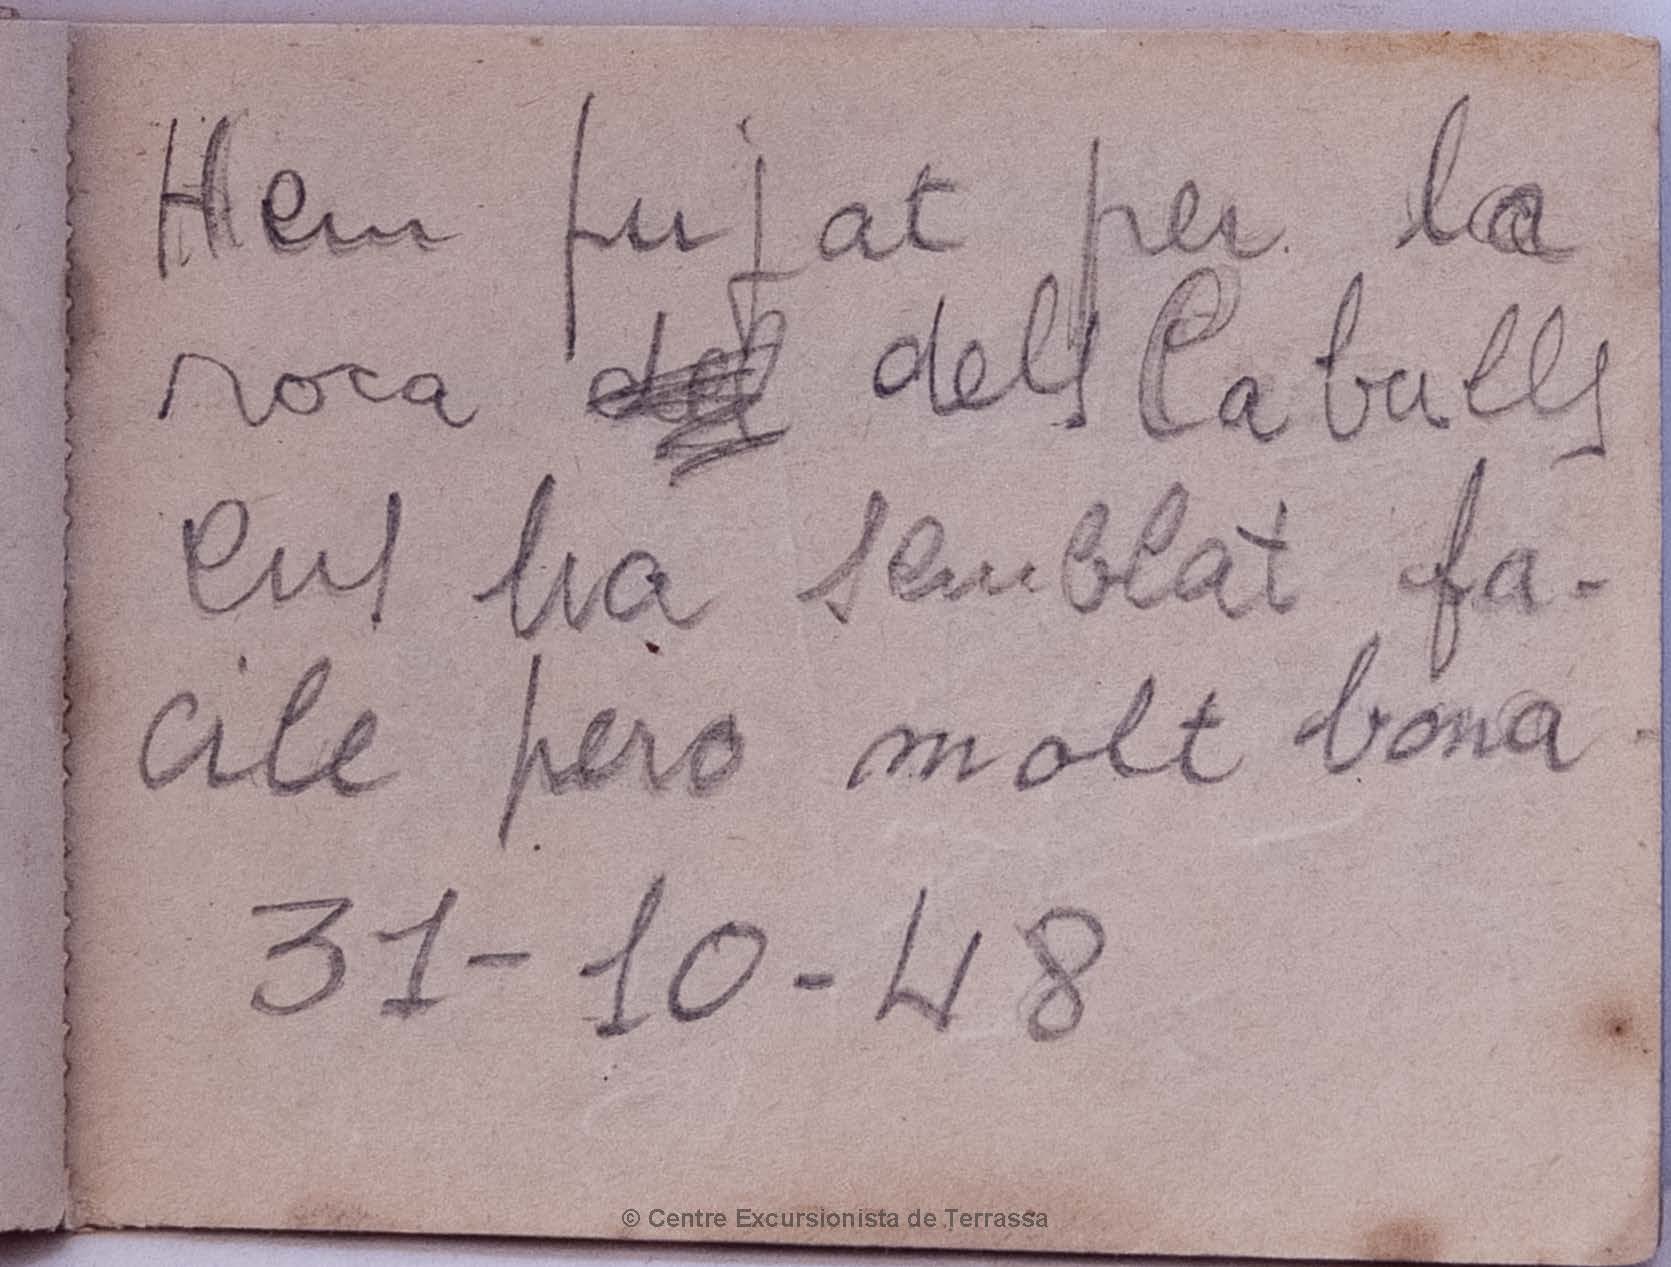 Hem pujat per la
roca dels Caballs
ens ha semblat fa-
cile pero molt bona.
31-10-48
© Centre Excursionista de Terrassa